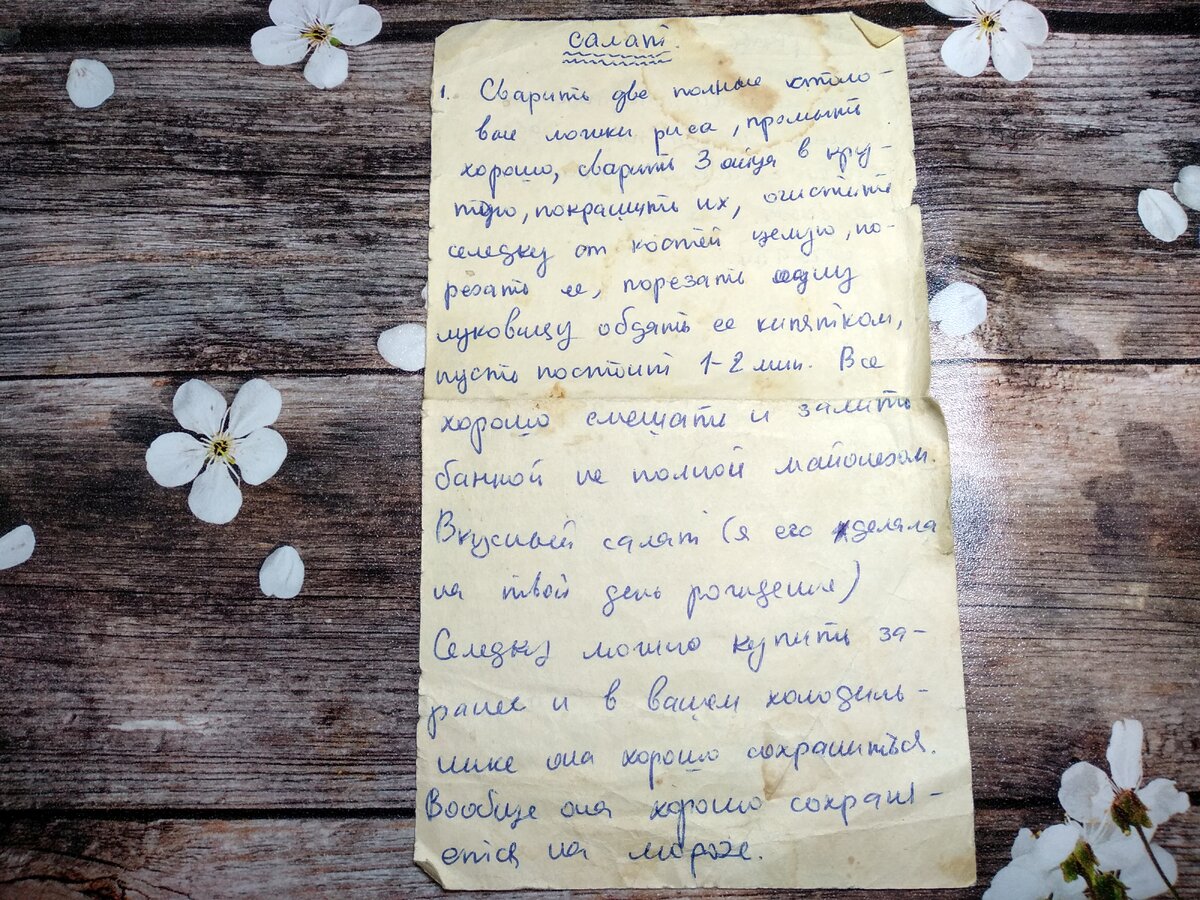 салат.
1. Сварить две полные столо-
вые ложки риса, промыть
хорошо, сварить 3 яйца в кру-
тую, покрашить их, очистить
селедку от костей целую, по-
резать ее, порезать одну
луковицу обдать ее кипятком,
пусть постоит 1-2 мин. Все
хорошо смешать и залить
банкой не полной майонезом.
Вкусный салат (я его делала
на твой день рождения)
Селедку можно купить за-
ранее и в вашем холодиль-
нике она хорошо сохраниться.
Вообще она хорошо сохраня-
ется на морозе.